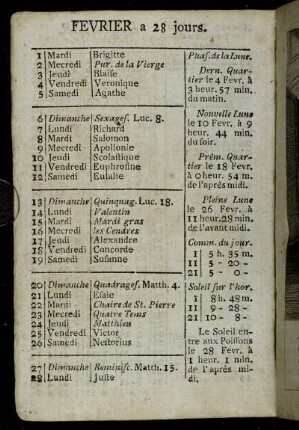 FEVRIER a 28 jours.
1 Mardi Brigitte
2 Mecredi Pur. de la Vierge
3 Jeudi Blaise
4 Vendredi Veronique
5 Samedi Agathe
6 Dimanche Sexages. Luc. 8.
7 Lundi Richard
8 Mardi Salomon
9 Mecredi Apollonie
10 Jeudi Scolastique
11 Vendredi Euphrosine
12 Samedi Eulalie
13 Dimanche Quinquag. Luc. 18.
14 Lundi Valentin
15 Mardi Mardi gras
16 Mecredi les Cendres
17 Jeudi Alexandre
18 Vendredi Concorde
19 Samedi Susanne
20 Dimanche Quadrages. Matth. 4.
21 Lundi Esaie
22 Mardi Chaire de St. Pierre
23 Mecredi Quatre Tems
24 Jeudi Matthieu
25 Vendredi Victor
26 Samedi Nestorius
27 Dimanche Reminisc. Matth. 15.
28 Lundi Juste
Phas. de la Lune.
Dern. Quar-
tier le 4 Fevr. à
3 heur. 57 min.
du matin.
Nouvelle Lune
le 10 Fevr. à 9
heur. 44 min.
du soir.
Prém. Quar-
tier le 18 Fevr.
à 0 heur. 54 m.
de l'après midi.
Pleine Lune
le 26 Fevr. à
11 heur. 28 min.
de l'avant midi.
Comm. du jour.
1 5 h. 35 m.
11 5 - 20 -
21 5 - 0 -
Soleil sur l'hor.
1 8 h. 48 m.
11 9 - 28 -
21 10 - 8 -
Le Soleil en-
tre aux Poissons
le 28 Fevr. à
1 heur. 1 min.
de l'après mi-
di.